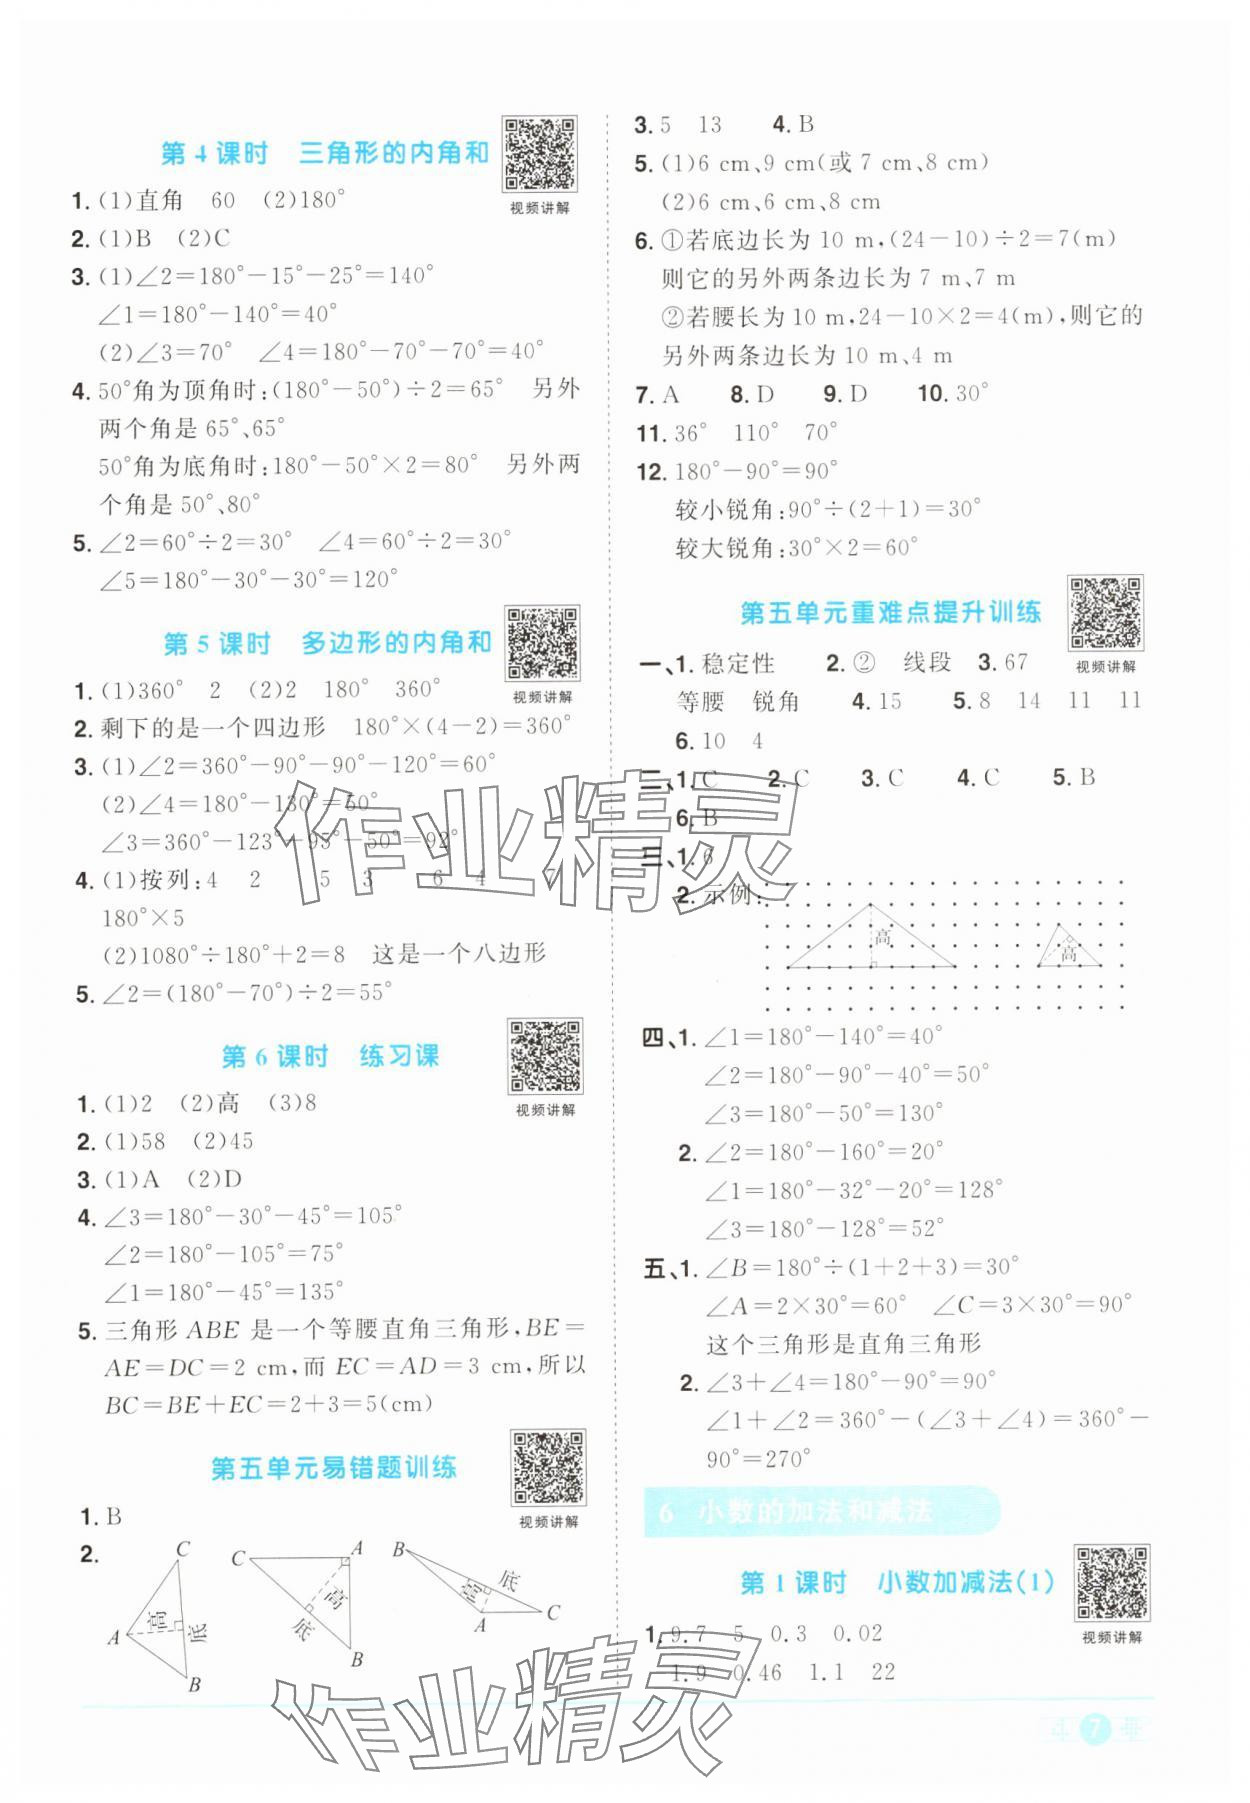 第 4 课时 三角形的内角和
视频讲解
1. (1)直角 60 (2)180°
2. (1)B (2)C
3. (1)∠2=180°-15°-25°=140°
∠1=180°-140°=40°
(2)∠3=70° ∠4=180°-70°-70°=40°
4. 50°角为顶角时:(180°-50°)÷2=65° 另外
两个角是 65°、65°
50°角为底角时:180°-50°×2=80° 另外两
个角是 50°、80°
5. ∠2=60°÷2=30° ∠4=60°÷2=30°
∠5=180°-30°-30°=120°
第 5 课时 多边形的内角和
视频讲解
1. (1)360° 2 (2)2 180° 360°
2. 剩下的是一个四边形 180°×(4-2)=360°
3. (1)∠2=360°-90°-90°-120°=60°
(2)∠4=180°-130°=50°
∠3=360°-123°-95°-50°=92°
4. (1)按列:4 2 5 3 6 4 7
180°×5
(2)1080°÷180°+2=8 这是一个八边形
5. ∠2=(180°-70°)÷2=55°
第 6 课时 练习课
视频讲解
1. (1)2 (2)高 (3)8
2. (1)58 (2)45
3. (1)A (2)D
4. ∠3=180°-30°-45°=105°
∠2=180°-105°=75°
∠1=180°-45°=135°
5. 三角形 ABE 是一个等腰直角三角形,BE=
AE=DC=2 cm,而 EC=AD=3 cm,所以
BC=BE+EC=2+3=5(cm)
第五单元易错题训练
视频讲解
1. B
2.
C 高 A 底 B
C A 高 底 B
B 底 高 A C
3. 5 13 4. B
5. (1)6 cm、9 cm(或 7 cm、8 cm)
(2)6 cm、6 cm、8 cm
6. ①若底边长为 10 m,(24-10)÷2=7(m)
则它的另外两条边长为 7 m、7 m
②若腰长为 10 m,24-10×2=4(m),则它的
另外两条边长为 10 m、4 m
7. A 8. D 9. D 10. 30°
11. 36° 110° 70°
12. 180°-90°=90°
较小锐角:90°÷(2+1)=30°
较大锐角:30°×2=60°
第五单元重难点提升训练
视频讲解
一、1. 稳定性 2. ② 线段 3. 67
等腰 锐角 4. 15 5. 8 14 11 11
6. 10 4
二、1. C 2. C 3. C 4. C 5. B
6. B
三、1. 6
2. 示例:
高 高
四、1. ∠1=180°-140°=40°
∠2=180°-90°-40°=50°
∠3=180°-50°=130°
2. ∠2=180°-160°=20°
∠1=180°-32°-20°=128°
∠3=180°-128°=52°
五、1. ∠B=180°÷(1+2+3)=30°
∠A=2×30°=60° ∠C=3×30°=90°
这个三角形是直角三角形
2. ∠3+∠4=180°-90°=90°
∠1+∠2=360°-(∠3+∠4)=360°-
90°=270°
6 小数的加法和减法
第 1 课时 小数加减法(1)
视频讲解
1. 9.7 5 0.3 0.02
1.9 0.46 1.1 22
7
作业精灵
作业精灵